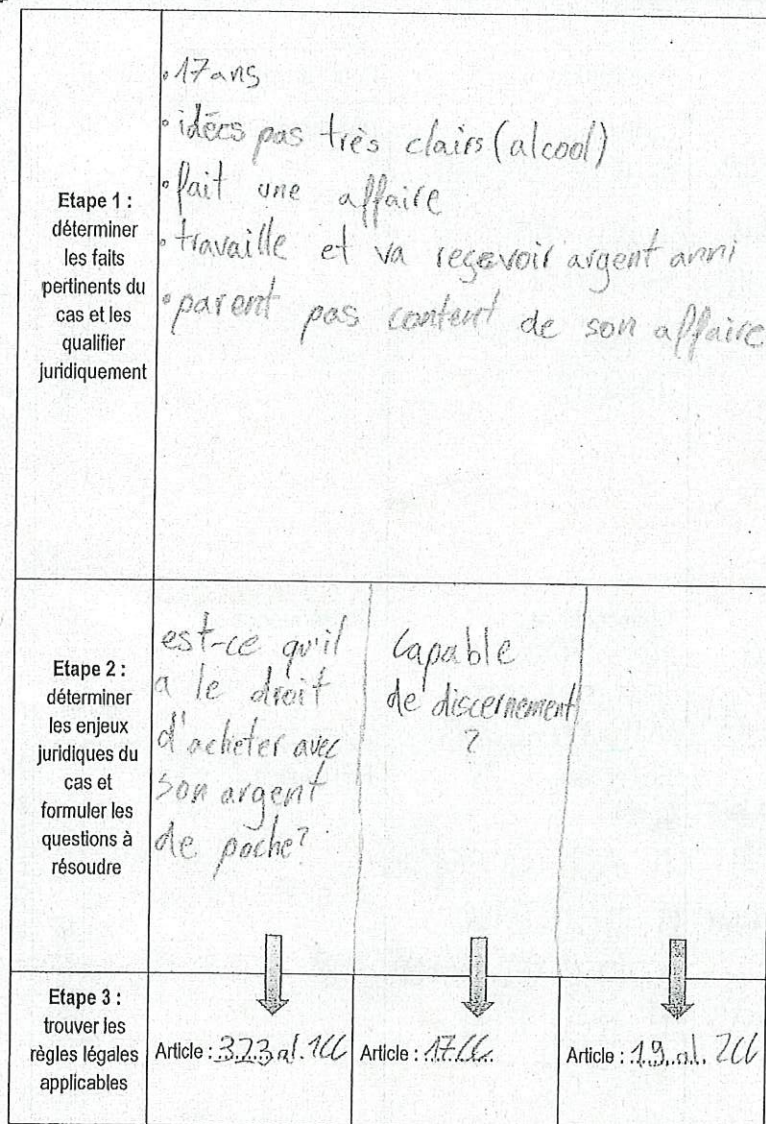 Etape 1 :
déterminer
les faits
pertinents du
cas et les
qualifier
juridiquement
• 17 ans
• idées pas très clairs (alcool)
• fait une affaire
• travaille et va reçevoir argent anni
• parent pas content de son affaire
Etape 2 :
déterminer
les enjeux
juridiques du
cas et
formuler les
questions à
résoudre
est-ce qu'il
a le droit
d'acheter avec
son argent
de poche?
Capable
de discernement
?
Etape 3 :
trouver les
règles légales
applicables
Article : 323 al. 1 CC
Article : 17 CC
Article : 19 al. 2 CC